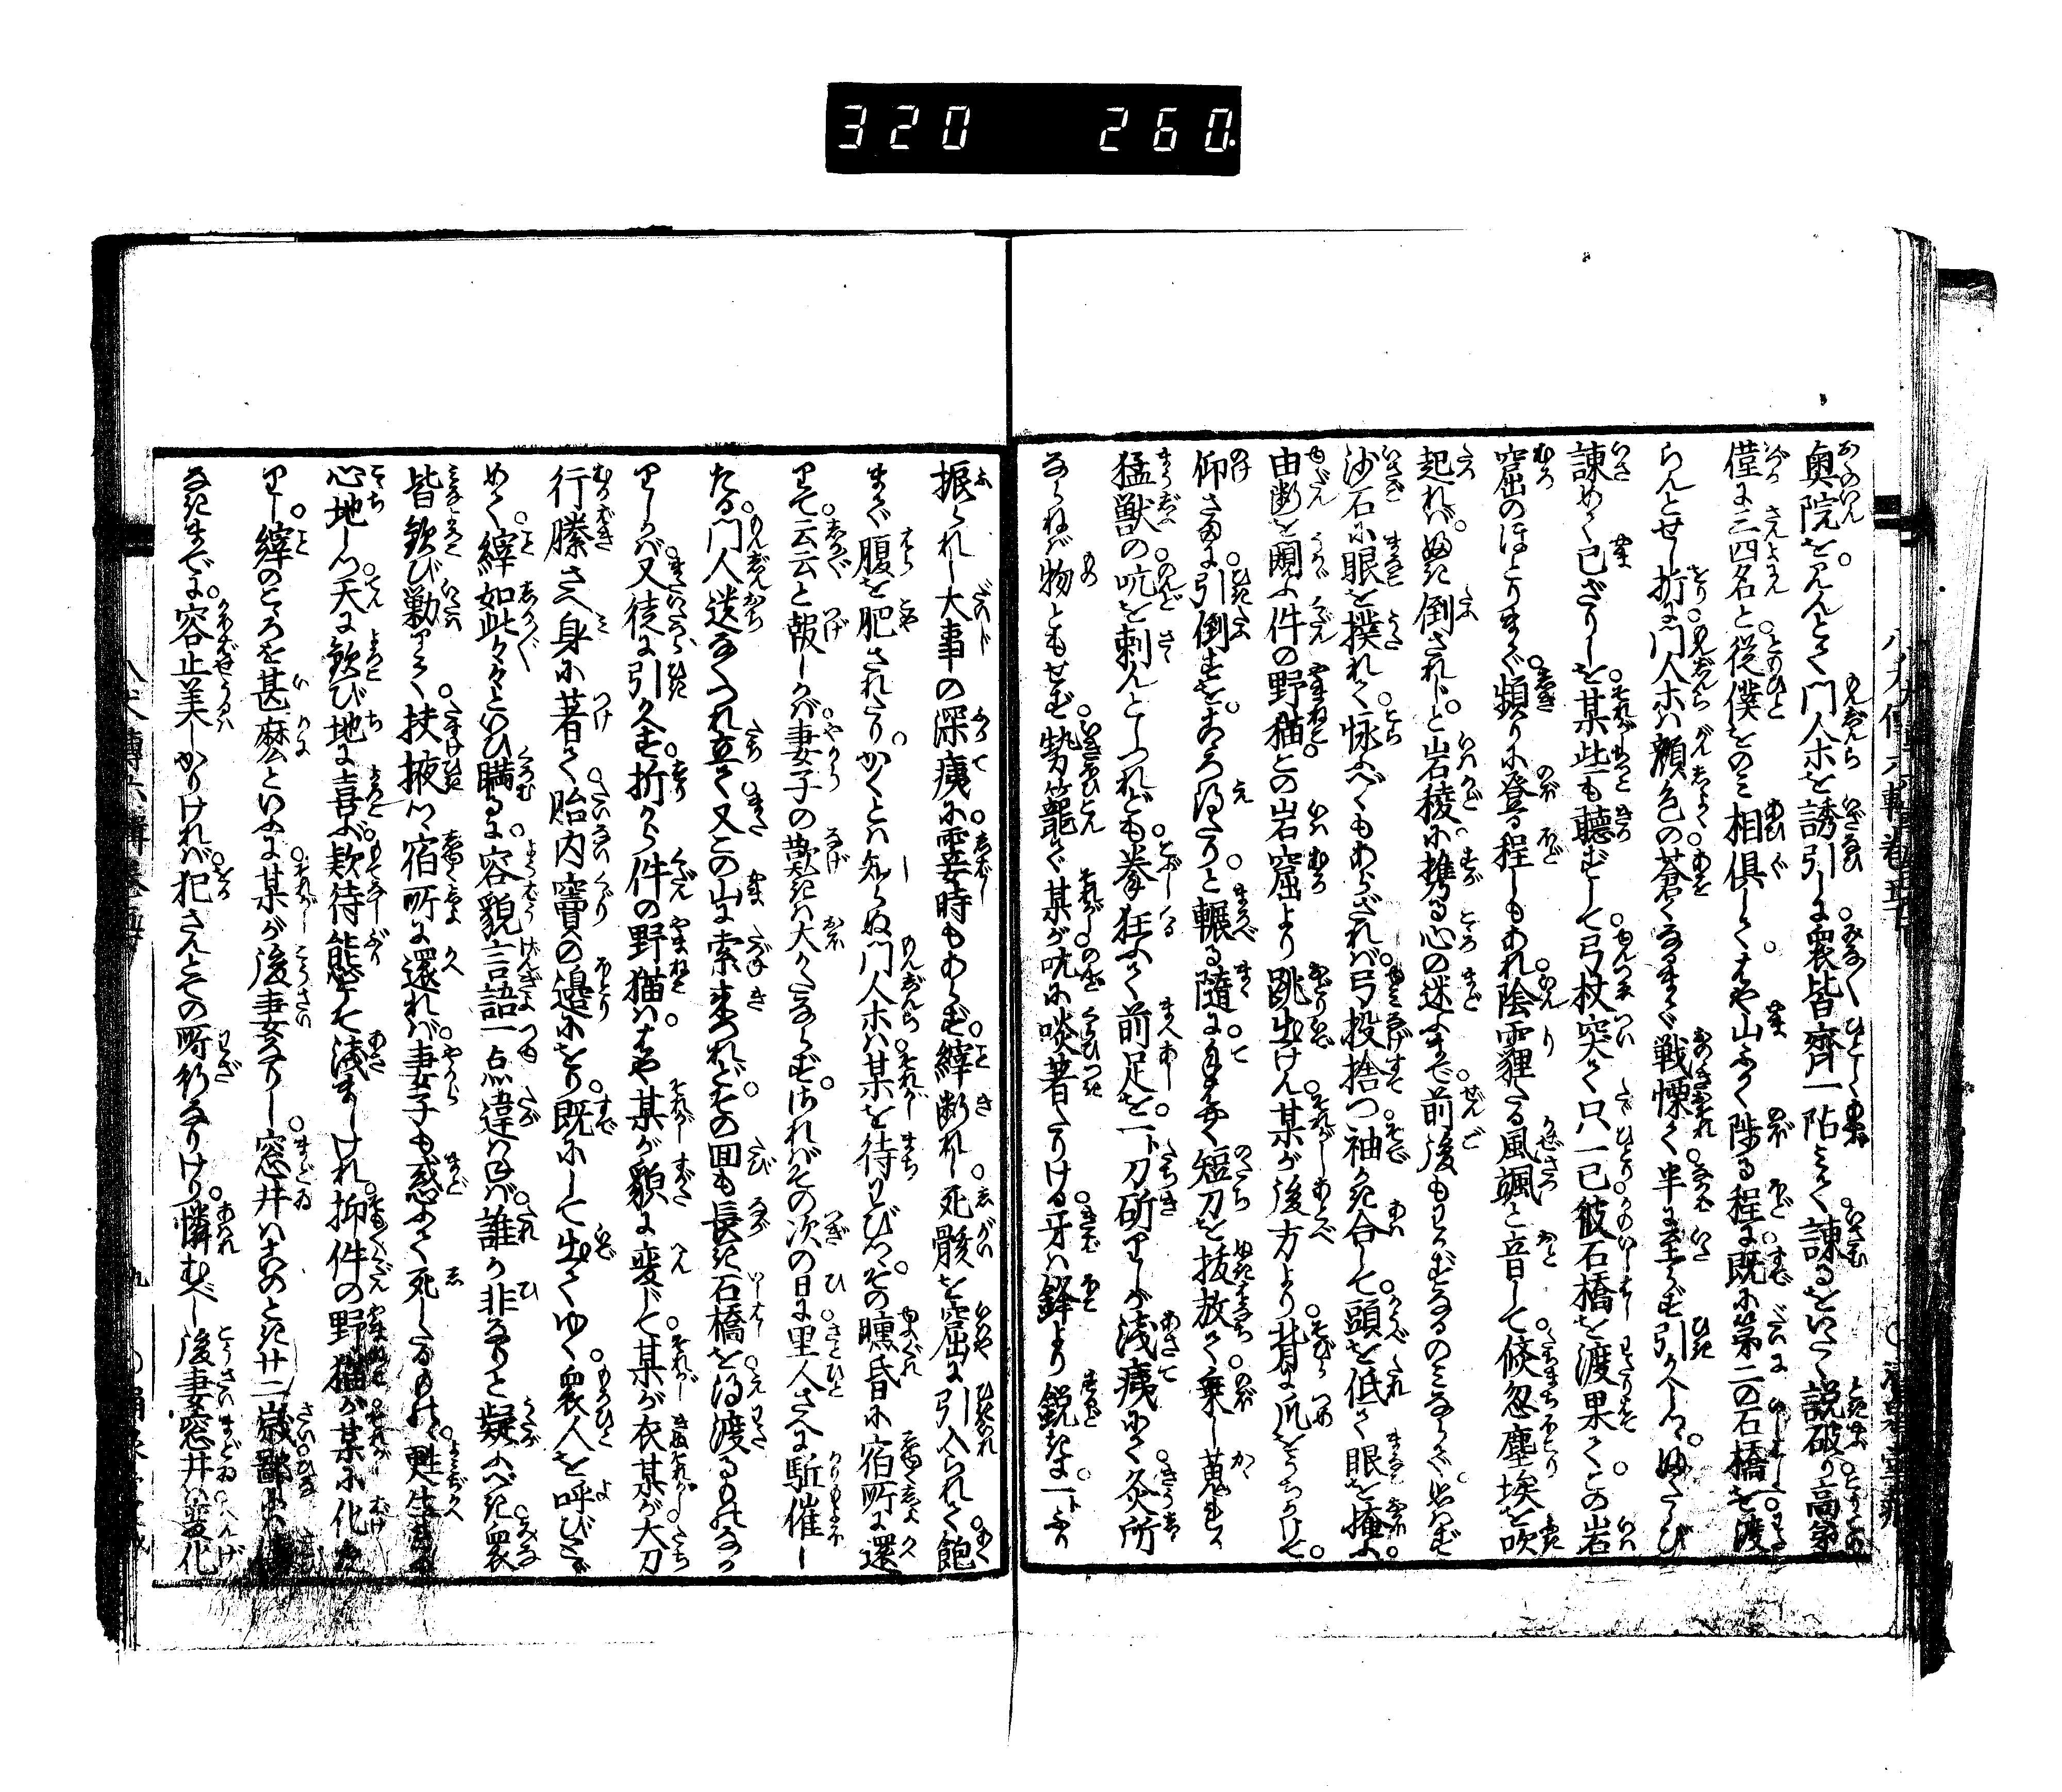 320 260
奥院を見んとて門人ホを誘引しに衆皆齊一阽みて諫るをいたく説破り高弟
僅に三四名と従僕をのミ相倶してはや山ふかく陟る程に既に第二の石橋を渡
らんとせし折に門人ホハ顔色の蒼くなるまで戦慄て半に至らず引かへしつふたゝび
諫めて已ざりしを某些も聴ずして弓杖突て只一已彼石橋を渡果てこの岩
窟のほとりまで頻りに登る程しもあれ陰霾たる風颯と音して倐忽塵埃を吹
起れバふき倒されじと岩稜に携る心の迷ふまで前後もわかずなるのミならで思はず
沙石に眼を撲れて怺ふべくもあらざれバ弓投捨つ袖かき合して頭を低て眼を掩ふ
由断を覸ふ件の野猫この岩窟より跳出けん某が後方より背に爪をうちかけて
仰さまに引倒すをこゝろ得たりと輾る隨に手はやく短刀を抜放て乗し蒐れる
猛獣の吭を刺んとしつれども拳狂ふて前足を一ト刀斫りしが浅痍にて灸所
ならねバ物ともせず勢ひ籠て某が吭に啖著たりける牙ハ鋒より鋭きに一トふり
振られし大事の深痍に霎時もあらず縡断れし死骸を窟に引入られて飽
まで腹を肥されたりかくとハ知らぬ門人ホハ某を待わびつゝその曛昏に宿所に還
りて云云と報しかバ妻子の歎きハ大かたならずされバその次の日に里人さへに駈催し
たる門人迭なくつれ立て又この山に索来つれどその面も長き石橋を得渡るものなか
りしかバ又徒に引かへす折から件の野猫ハはや某が貌に変じて某が衣某が大刀
行縢さへ身に著て胎内竇の邉にをり既にして出てゆく衆人を呼びとゞ
めて縡如此々々といひ瞞るに容貌言語一点違はねバ誰か非なりと疑ふべき衆
皆歓び勦りて扶掖つ宿所に還れバ妻子も惑ふて死したるものゝ甦生
心地しつ天に歓び地に喜ぶ欵待態こそ浅ましけれ抑件の野猫が某に化た
りし縡のこゝろを甚麽といふに某が後妻なりし窓井ハこのとき廿二歳鄙に
なきまでに容止美しかりけれバ犯さんとその所行なりけり憐むべし後妻窓井ハ変化